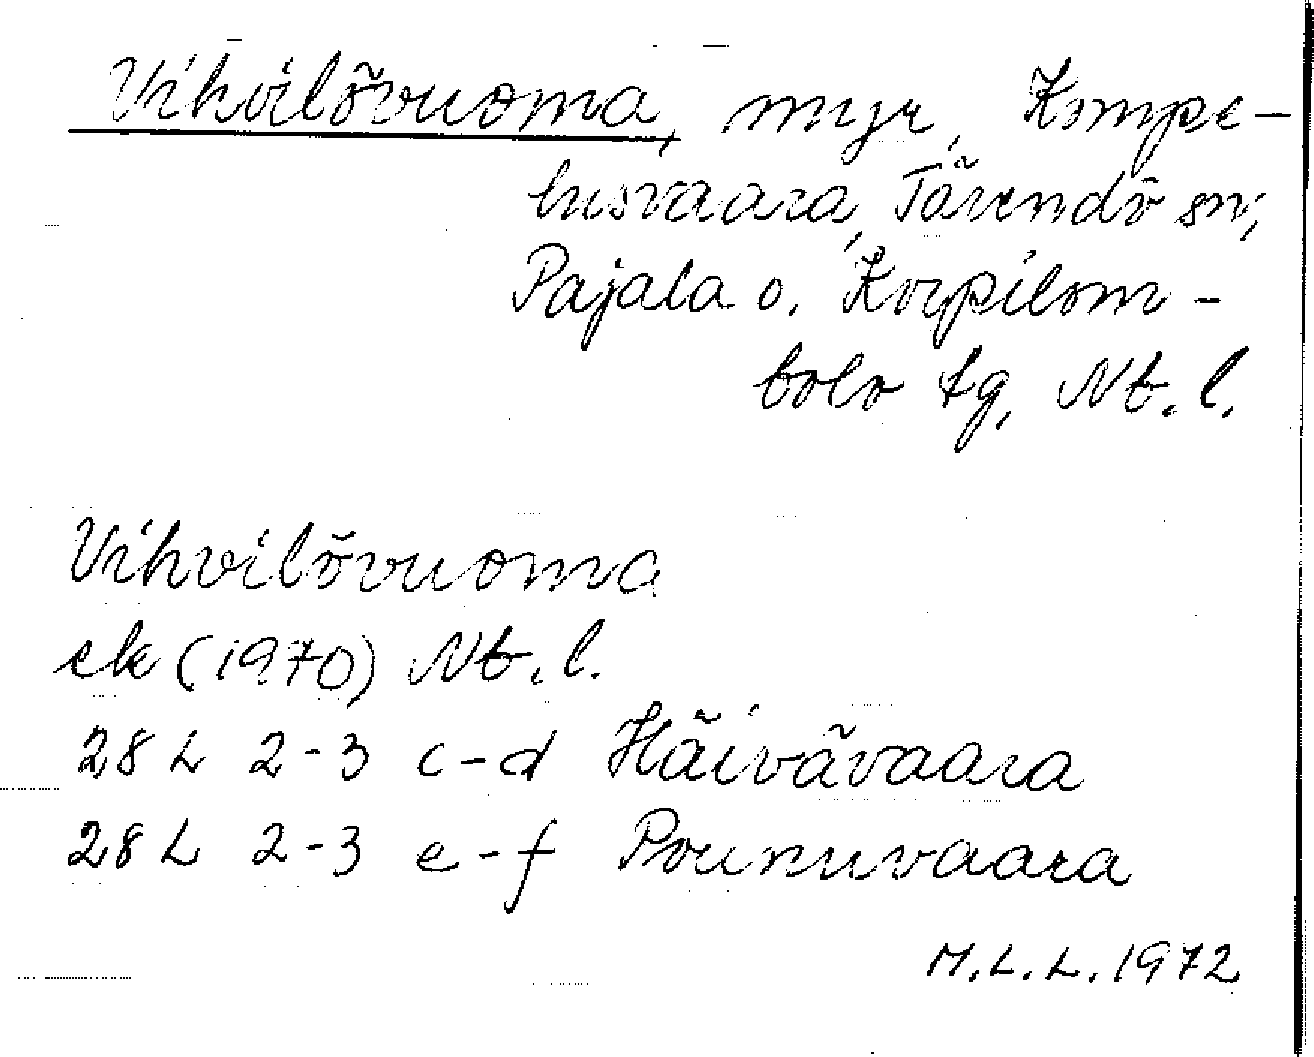 Vihvilövuoma, myr, Kompe-
lusvaara, Tärendö sn,
Pajala o. Korpilom-
bolo tg, Nb. l.
Vihvilövuoma
ek (1970) Nb. l.
28 L 2-3 c-d Häivävaara
28 L 2-3 e-f Pounuvaara
M.L.L. 1972